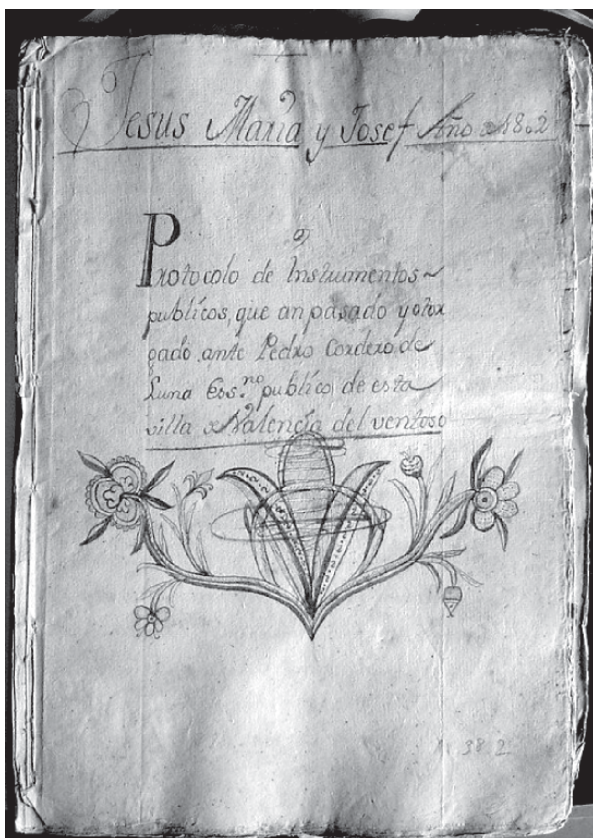 Jesus Maria y Josef Año d 1802
Protocolo de Instrumentos
publicos, que an pasado y otor
gado ante Pedro Cordero de
Luna Ess.no publico de esta
villa d Valencia del ventoso
38 2